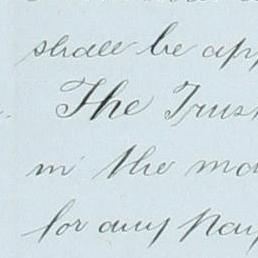 shall be app
The Trust
in the ma
for any pay